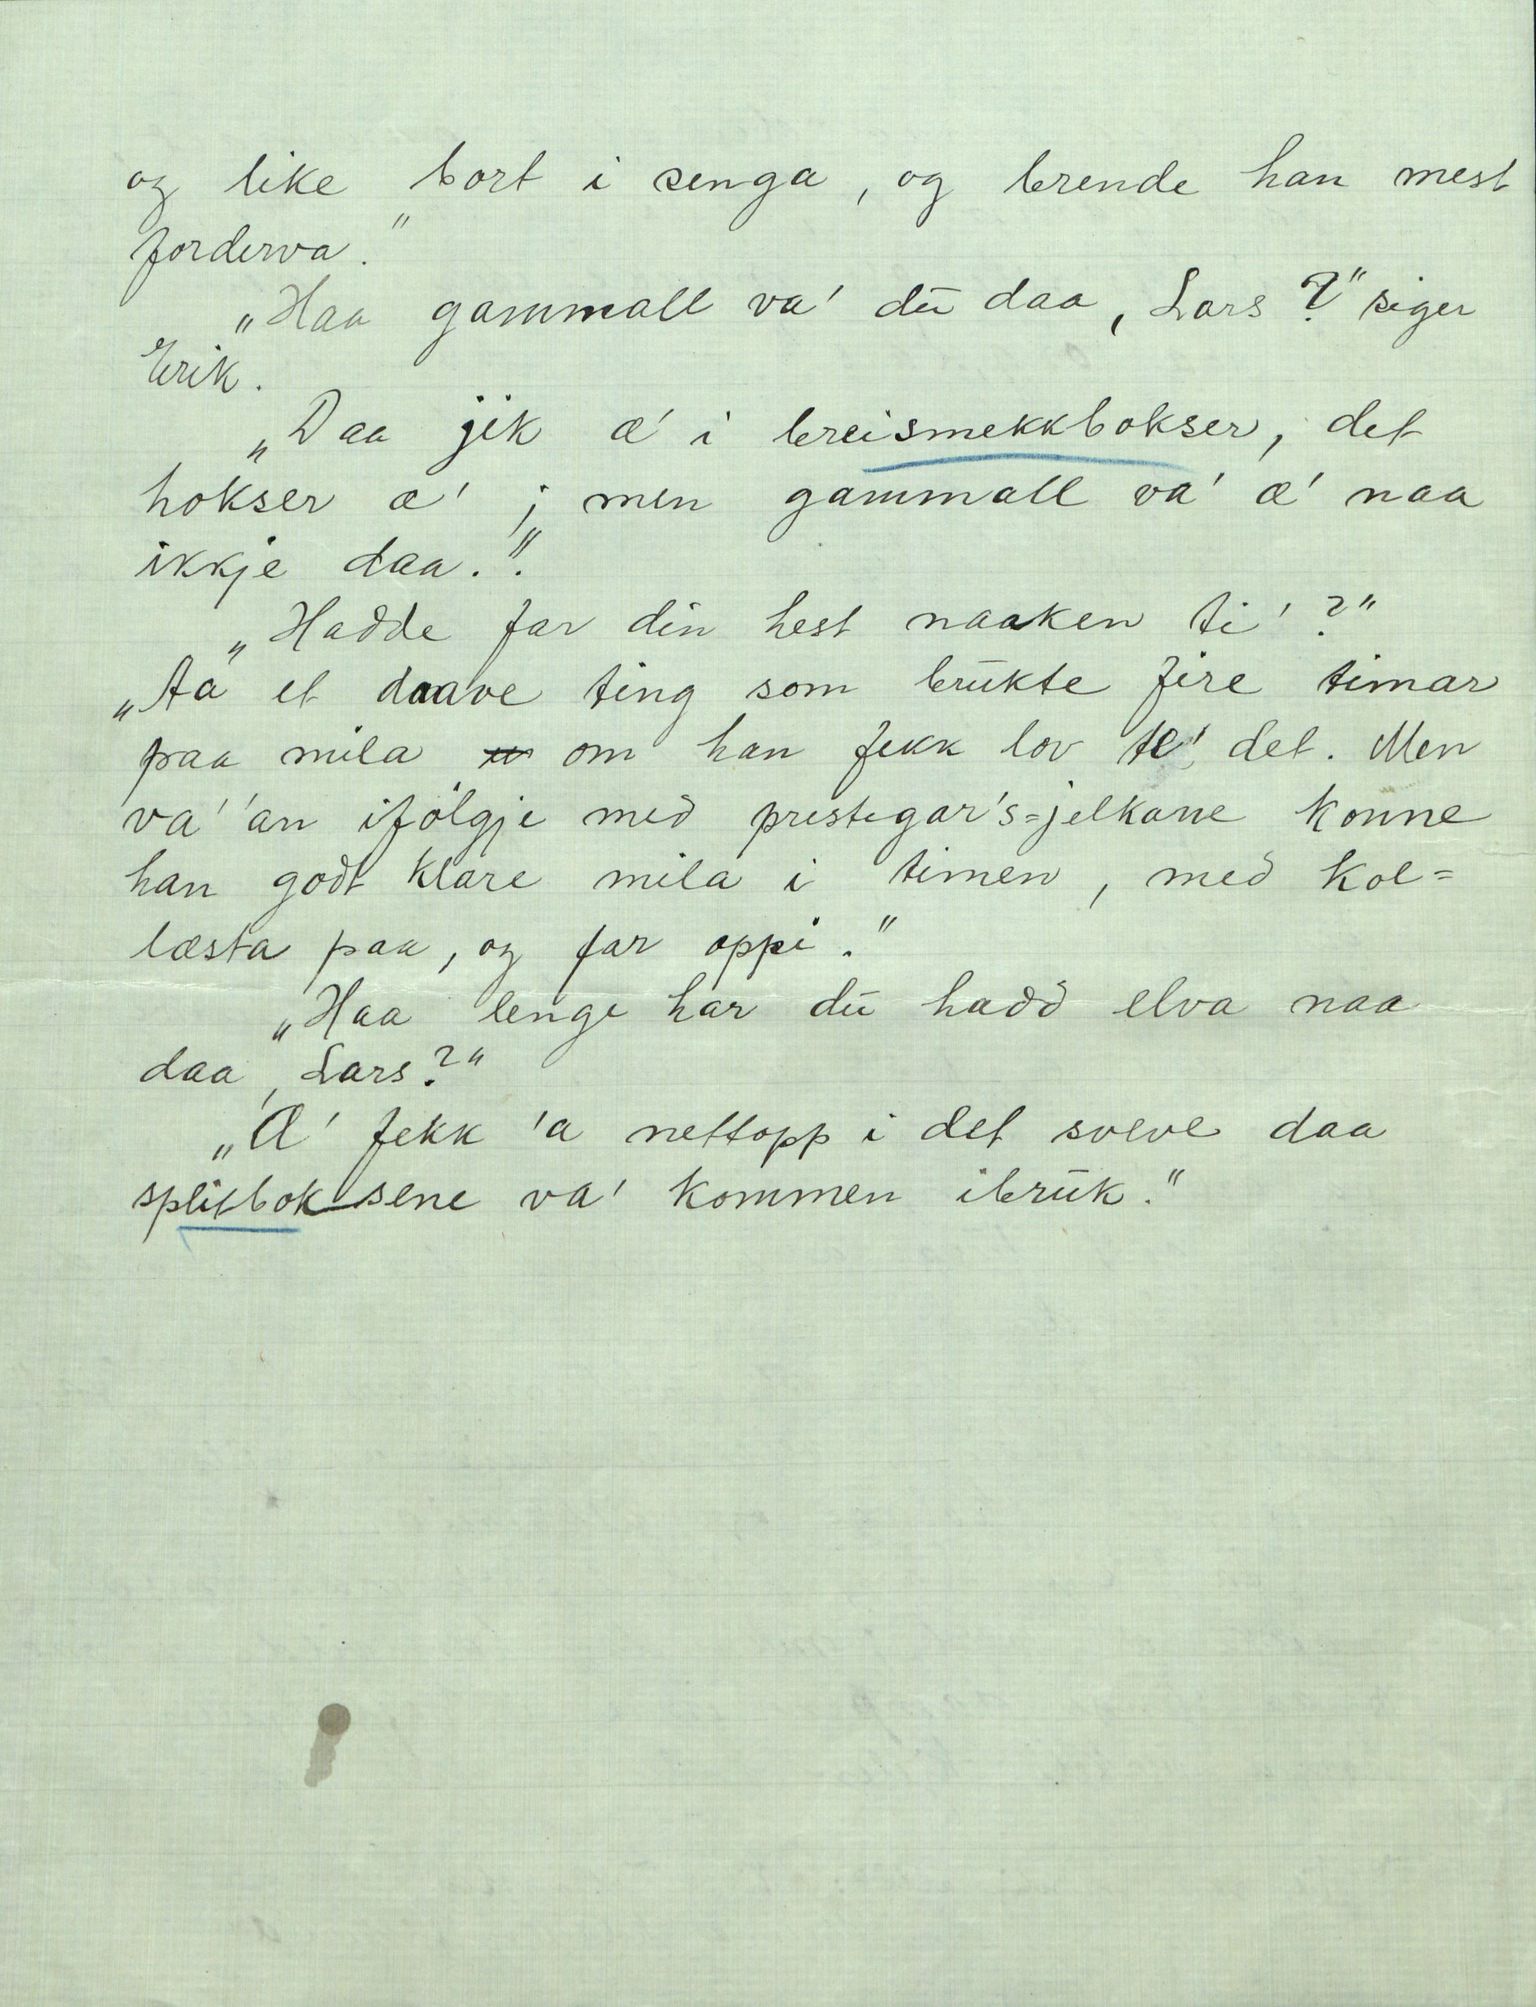 og like bort i senga, og brende han mest
forderva."
„Haa gammall va' du daa, Lars?" siger
Erik.
„Daa jik æ' i breismekkbokser, det
hokser æ'; men gammall va' æ' naa
ikkje daa."
„Hadde far din hest naaken ti'?"
„Aa et daave ting som brukte fire timar
paa mila om han fekk lov te' det. Men
va' 'an ifölgje med prestegar's=jelkane konne
han godt klare mila i timen, med kol=
læsta paa, og far oppi."
„Haa lenge har du hadd elva naa
daa, Lars?"
„Æ' fekk 'a nettopp i det sveve daa
splitboksene va' kommen ibruk."